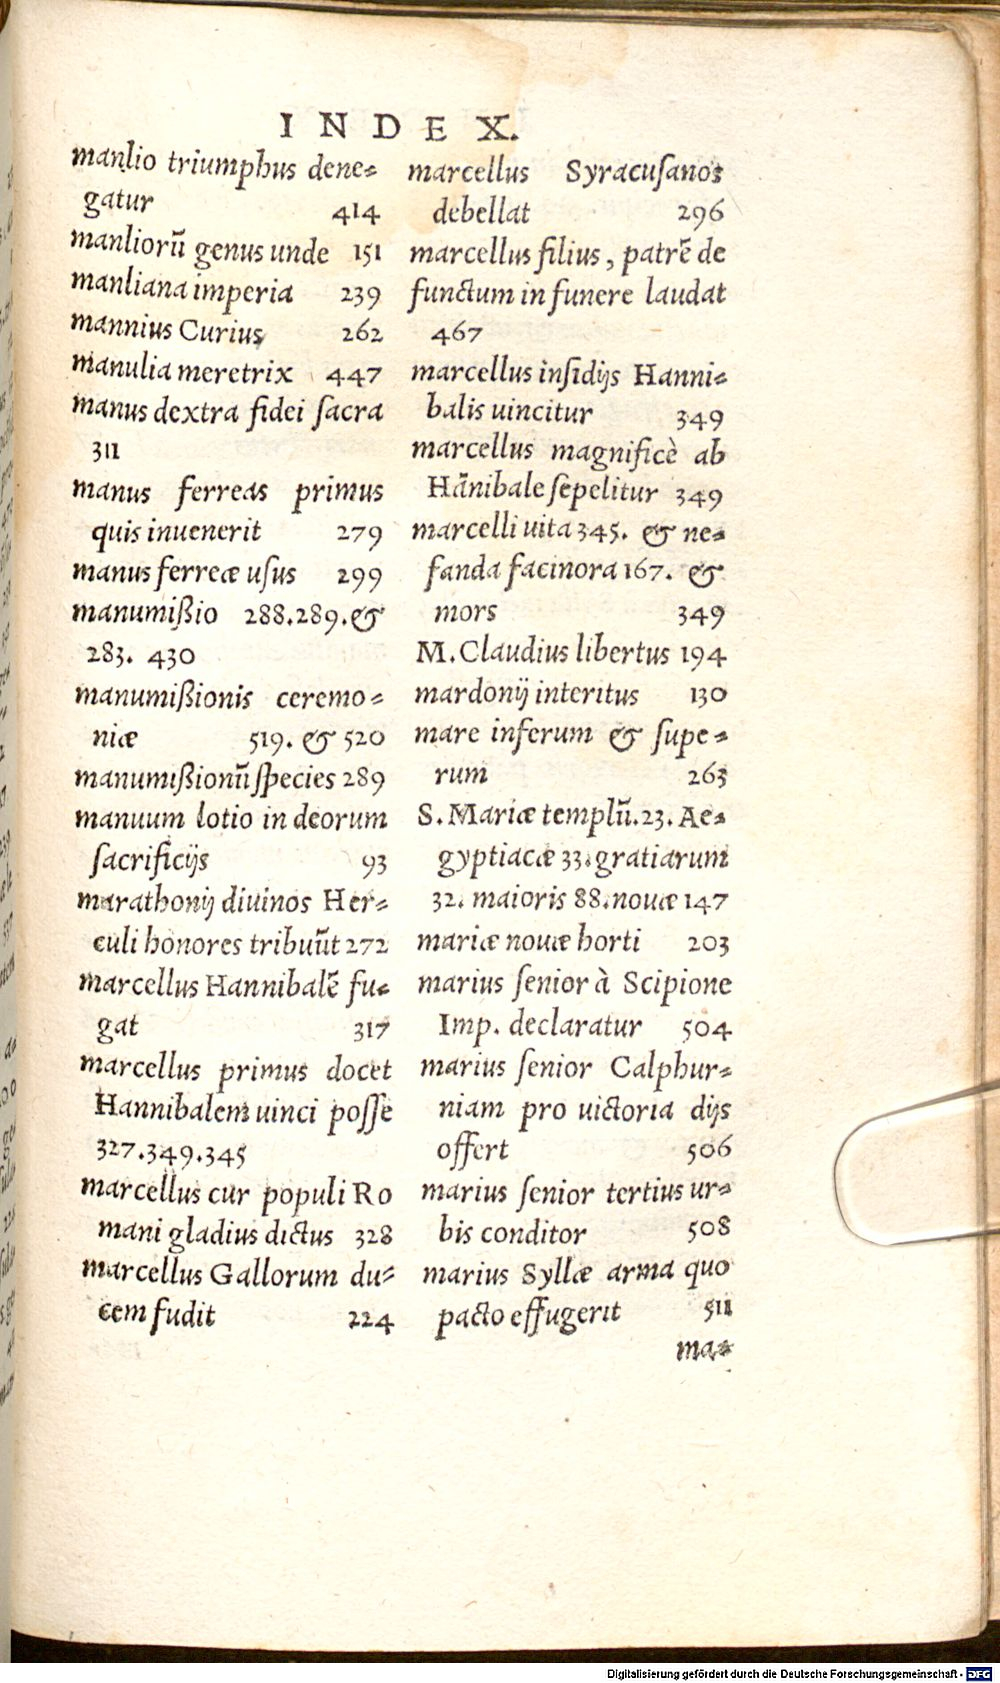 INDEX.
manlio triumphus dene-
gatur 414
manliorũ genus unde 151
manliana imperia 239
mannius Curius 262
manulia meretrix 447
manus dextra fidei ſacra
311
manus ferreas primus
quis inuenerit 279
manus ferreæ uſus 299
manumiſsio 288.289.&
283. 430
manumiſsionis ceremo-
niæ 519. & 520
manumiſsionũ ſpecies 289
manuum lotio in deorum
ſacrificijs 93
marathonij diuinos Her-
culi honores tribuũt 272
marcellus Hannibalẽ fu-
gat 317
marcellus primus docet
Hannibalem uinci poſſe
327.349.345
marcellus cur populi Ro
mani gladius dictus 328
marcellus Gallorum du-
cem fudit 224
marcellus Syracuſanos
debellat 296
marcellus filius, patrẽ de
functum in funere laudat
467
marcellus inſidijs Hanni-
balis uincitur 349
marcellus magnificè ab
Hãnibale ſepelitur 349
marcelli uita 345. & ne-
fanda facinora 167. &
mors 349
M. Claudius libertus 194
mardonij interitus 130
mare inferum & ſupe-
rum 263
S. Mariæ templũ.23. Ae-
gyptiacæ 33.gratiarum
32. maioris 88.nouæ 147
mariæ nouæ horti 203
marius ſenior à Scipione
Imp. declaratur 504
marius ſenior Calphur-
niam pro uictoria dijs
offert 506
marius ſenior tertius ur-
bis conditor 508
marius Syllæ arma quo
pacto effugerit 511
ma-
Digitalisierung gefördert durch die Deutsche Forschungsgemeinschaft - DFG